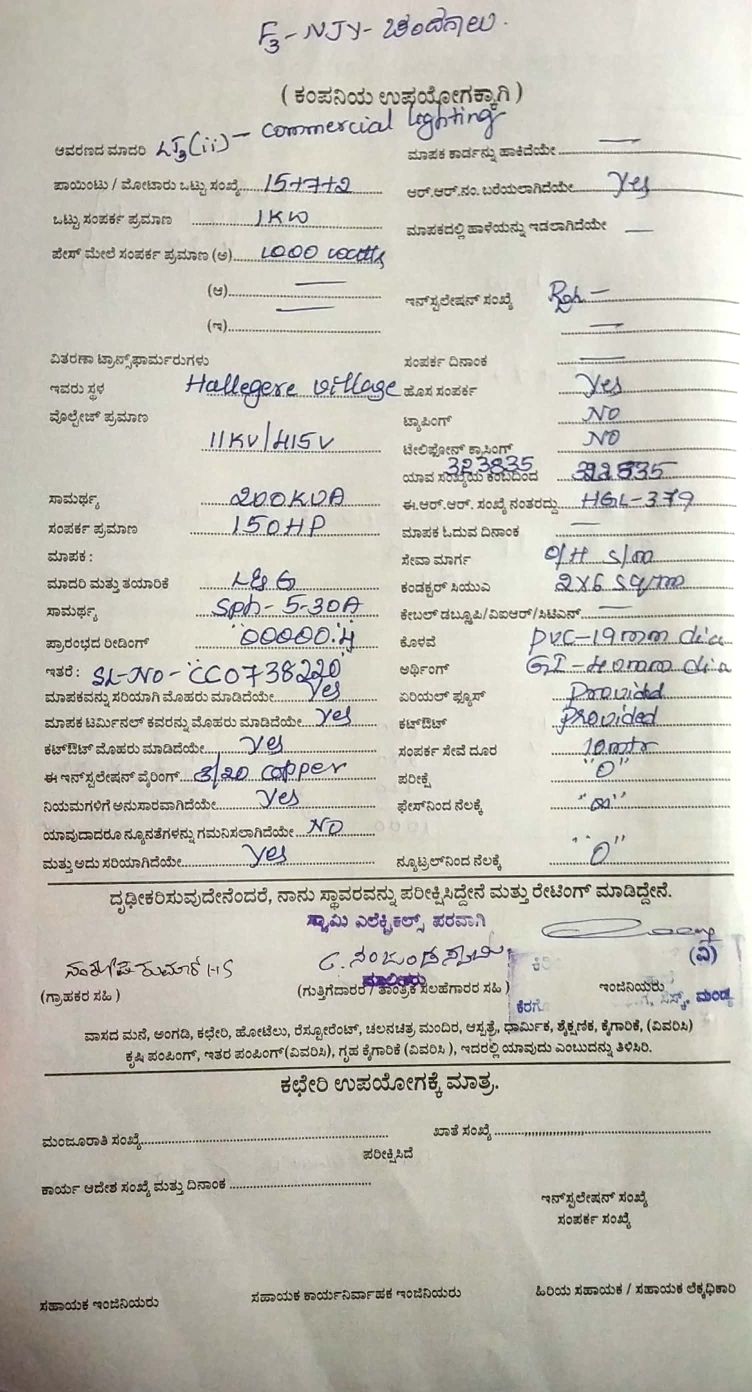 F3 - NJY - ಚಂದಗಾಲು.
( ಕಂಪನಿಯ ಉಪಯೋಗಕ್ಕಾಗಿ )
ಆವರಣದ ಮಾದರಿ LT3(ii) - commercial lighting
ಮಾಪಕ ಕಾರ್ಡನ್ನು ಹಾಕಿದೆಯೇ —
ಪಾಯಿಂಟು / ಮೋಟಾರು ಒಟ್ಟು ಸಂಖ್ಯೆ 15+7+2
ಆರ್.ಆರ್.ನಂ. ಬರೆಯಲಾಗಿದೆಯೇ Yes
ಒಟ್ಟು ಸಂಪರ್ಕ ಪ್ರಮಾಣ 1KW
ಮಾಪಕದಲ್ಲಿ ಹಾಳೆಯನ್ನು ಇಡಲಾಗಿದೆಯೇ —
ಪೇಸ್ ಮೇಲೆ ಸಂಪರ್ಕ ಪ್ರಮಾಣ (ಅ) 1000 watts
(ಆ) —
ಇನ್‌ಸ್ಟಲೇಷನ್ ಸಂಖ್ಯೆ
(ಇ) —
ವಿತರಣಾ ಟ್ರಾನ್ಸ್‌ಫಾರ್ಮರುಗಳು
ಸಂಪರ್ಕ ದಿನಾಂಕ —
ಇವರು ಸ್ಥಳ Hallegere village
ಹೊಸ ಸಂಪರ್ಕ Yes
ವೊಲ್ಟೇಜ್ ಪ್ರಮಾಣ 11KV/415V
ಟ್ಯಾಪಿಂಗ್ NO
ಟೇಲಿಫೋನ್ ಕ್ರಾಸಿಂಗ್ NO
ಯಾವ ಸಂಖ್ಯೆಯ ಕಂಬದಿಂದ 323835
ಸಾಮರ್ಥ್ಯ 200KVA
ಈ.ಆರ್.ಆರ್. ಸಂಖ್ಯೆ ನಂತರದ್ದು HGL-379
ಸಂಪರ್ಕ ಪ್ರಮಾಣ 150HP
ಮಾಪಕ ಓದುವ ದಿನಾಂಕ —
ಮಾಪಕ :
ಸೇವಾ ಮಾರ್ಗ O/H S/m
ಮಾದರಿ ಮತ್ತು ತಯಾರಿಕೆ L&G
ಕಂಡಕ್ಟರ್ ಸಿಯುಎ 2X6 sq/mm
ಸಾಮರ್ಥ್ಯ Sph - 5-30A
ಕೇಬಲ್ ಡಬ್ಲೂಪಿ/ವಿಐಆರ್/ಸಿಟಿಎಸ್ —
ಪ್ರಾರಂಭದ ರೀಡಿಂಗ್ 00000.4
ಕೊಳವೆ PVC-19mm dia
ಇತರೆ : SL-NO-CC0738220
ಅರ್ಥಿಂಗ್ GI-40mm dia
ಮಾಪಕವನ್ನು ಸರಿಯಾಗಿ ಮೊಹರು ಮಾಡಿದೆಯೇ Yes
ಏರಿಯಲ್ ಫ್ಯೂಸ್ Provided
ಮಾಪಕ ಟರ್ಮಿನಲ್ ಕವರನ್ನು ಮೊಹರು ಮಾಡಿದೆಯೇ Yes
ಕಟ್‌ಔಟ್ Provided
ಕಟ್‌ಔಟ್ ಮೊಹರು ಮಾಡಿದೆಯೇ Yes
ಸಂಪರ್ಕ ಸೇವೆ ದೂರ 10mtr
ಈ ಇನ್‌ಸ್ಟಲೇಷನ್ ವೈರಿಂಗ್ 3/20 copper
ಪರೀಕ್ಷೆ "0"
ನಿಯಮಗಳಿಗೆ ಅನುಸಾರವಾಗಿದೆಯೇ Yes
ಫೇಸ್‌ನಿಂದ ನೆಲಕ್ಕೆ "∞"
ಯಾವುದಾದರೂ ನ್ಯೂನತೆಗಳನ್ನು ಗಮನಿಸಲಾಗಿದೆಯೇ NO
ಮತ್ತು ಅದು ಸರಿಯಾಗಿದೆಯೇ Yes
ನ್ಯೂಟ್ರಲ್‌ನಿಂದ ನೆಲಕ್ಕೆ "0"
ದೃಢೀಕರಿಸುವುದೇನೆಂದರೆ, ನಾನು ಸ್ಥಾವರವನ್ನು ಪರೀಕ್ಷಿಸಿದ್ದೇನೆ ಮತ್ತು ರೇಟಿಂಗ್ ಮಾಡಿದ್ದೇನೆ.
ಸ್ವಾಮಿ ಎಲೆಕ್ಟ್ರಿಕಲ್ಸ್ ಪರವಾಗಿ
ಸಂತೋಷಕುಮಾರ HS
ಮಾಲೀಕರು
(ವಿ)
(ಗ್ರಾಹಕರ ಸಹಿ )
(ಗುತ್ತಿಗೆದಾರರ / ತಾಂತ್ರಿಕ ಸಲಹೆಗಾರರ ಸಹಿ )
ಇಂಜಿನಿಯರು
ಮಂಡ್ಯ
ವಾಸದ ಮನೆ, ಅಂಗಡಿ, ಕಛೇರಿ, ಹೋಟೆಲು, ರೆಸ್ಟೋರೆಂಟ್, ಚಲನಚಿತ್ರ ಮಂದಿರ, ಆಸ್ಪತ್ರೆ, ಧಾರ್ಮಿಕ, ಶೈಕ್ಷಣಿಕ, ಕೈಗಾರಿಕೆ, (ವಿವರಿಸಿ)
ಕೃಷಿ ಪಂಪಿಂಗ್, ಇತರ ಪಂಪಿಂಗ್(ವಿವರಿಸಿ), ಗೃಹ ಕೈಗಾರಿಕೆ (ವಿವರಿಸಿ ), ಇದರಲ್ಲಿ ಯಾವುದು ಎಂಬುದನ್ನು ತಿಳಿಸಿರಿ.
ಕಛೇರಿ ಉಪಯೋಗಕ್ಕೆ ಮಾತ್ರ.
ಮಂಜೂರಾತಿ ಸಂಖ್ಯೆ
ಖಾತೆ ಸಂಖ್ಯೆ
ಪರೀಕ್ಷಿಸಿದೆ
ಕಾರ್ಯ ಆದೇಶ ಸಂಖ್ಯೆ ಮತ್ತು ದಿನಾಂಕ
ಇನ್‌ಸ್ಪಲೇಷನ್ ಸಂಖ್ಯೆ
ಸಂಪರ್ಕ ಸಂಖ್ಯೆ
ಸಹಾಯಕ ಇಂಜಿನಿಯರು
ಸಹಾಯಕ ಕಾರ್ಯನಿರ್ವಾಹಕ ಇಂಜಿನಿಯರು
ಹಿರಿಯ ಸಹಾಯಕ / ಸಹಾಯಕ ಲೆಕ್ಕಧಿಕಾರಿ